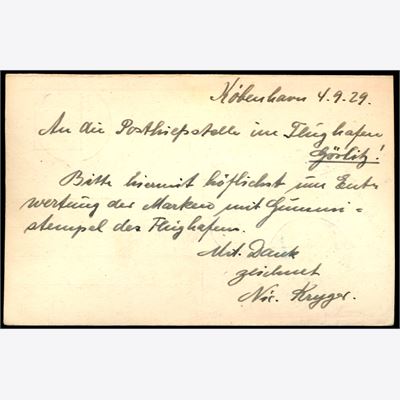 København 4.9.29.
An die Posthiefsstelle im Flughafen
Görlitz!
Bitte hiermit höflichst um Ent=
wertung der Marken mit Gummi=
stempel des Flughafens.
Mit Dank
zeichnet
Nic. Kryger.